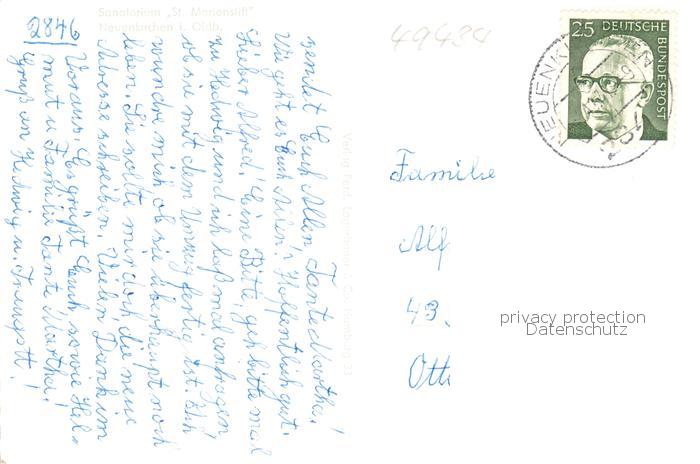 Sanatorium „St. Marienstift"
Neuenkirchen i. Oldb.
2846
49434
25 DEUTSCHE BUNDESPOST
NEUENKIRCHEN
Familie
Alf
43.
Ott
privacy protection
Datenschutz
sendet Euch Allen Tante Martha!
Wie geht es Euch Allen? Hoffentlich gut.
Lieber Alfred! Eine Bitte, geh bitte mal
zu Hedwig und ich laß mal anfragen
ob sie mit dem Umzug fertig ist. Ich
wundre mich ob sie überhaupt noch
leben. Sie sollte mir doch die neue
Adresse schreiben. Vielen Dank im
Voraus. Es grüßt Euch sowie Hel-
mut u. Familie Tante Martha!
Gruß an Hedwig u.
Verlag Ferd. Lagerbauer & Co., Hamburg 33